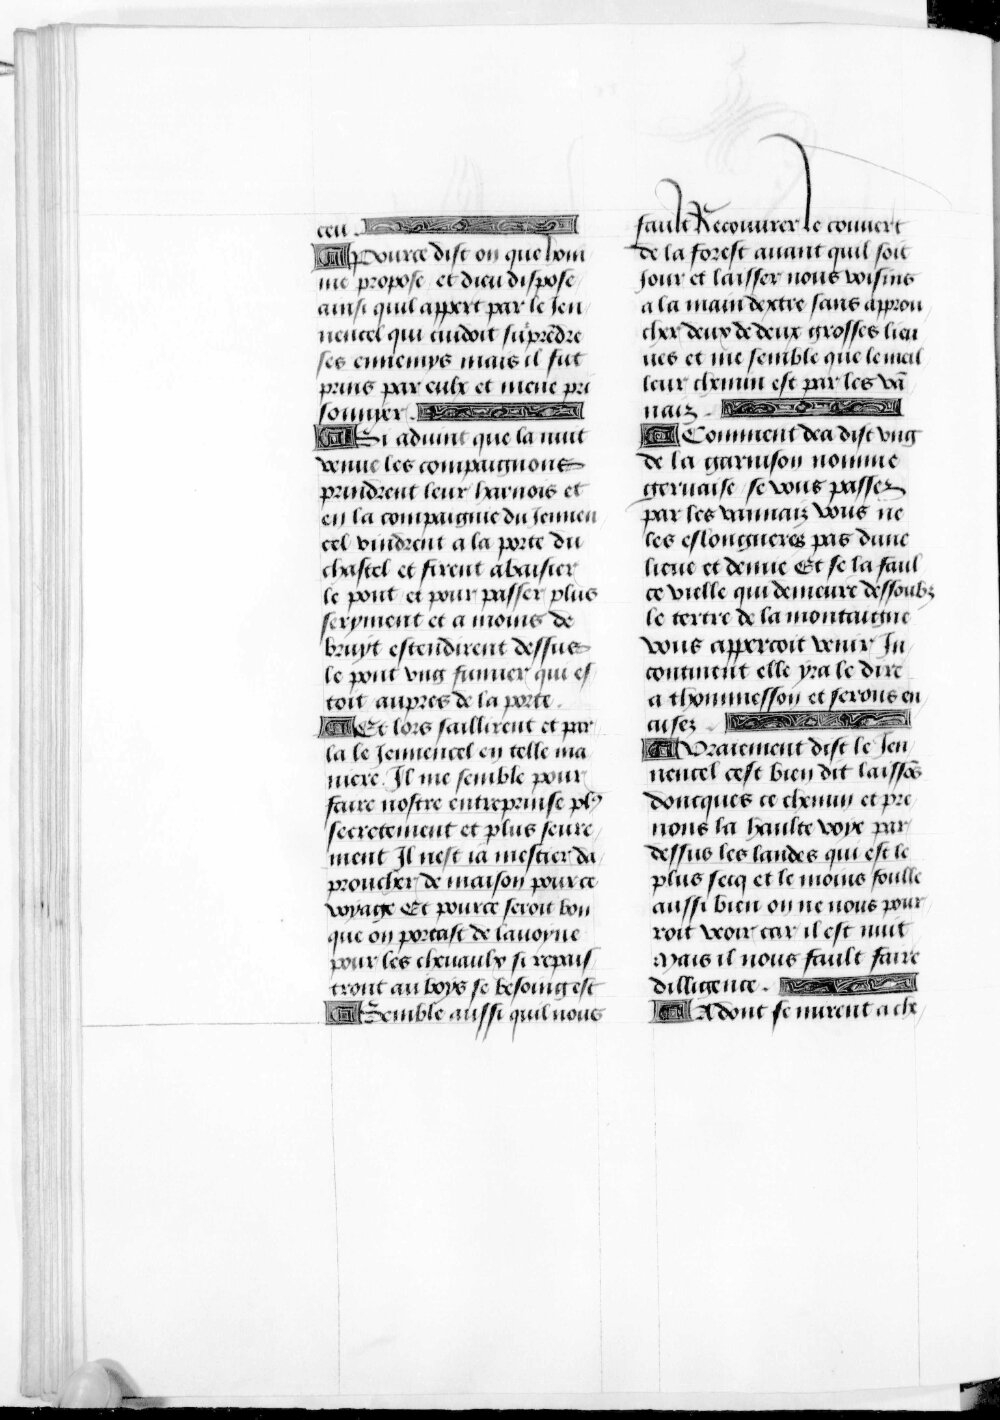 ceu .
Pource dist on que hom
me propose / et dieu dispose /
ainsi quil appert par le Jen
nencel qui cuidoit sup̄redre
ses ennemys mais il fut
prins par eulx et mene pri
sonnyer .
Si advint que la nuit
venue les compaignons
prindrent leur harnois et
en la compaignie du Jennen
cel vindrent a la porte du
chastel et firent abaisier
le pont / et pour passer plus
seryment et a moins de
bruyt estendirent dessus
le pont vng fumier qui es
toit aupres de la porte .
Et lors saillirent et par
la le Jennencel en telle ma
niere . Il me semble pour
faire nostre entreprinse pl9
secretement et plus seure /
ment Il nest ia mestier da /
proucher de maison pour ce
voyage Et pource seroit bon
que on portast de lavoyne
pour les chevaulx si repais
tront au boys se besoing est
Semble aussi quil nous
fault Recouvrer le couvert
de la forest auant quil soit
Jour et laisser nous voisins
a la main dextre sans approu
cher deux de deux grosses lieu
ues et me semble que le meil
leur chemin est par les va͞
naiz .
Comment dea dist vng
de la garnison nomme
gervaise / se vous passez
par les vannaiz vous ne
les eslongneres pas dune
lieue et demie Et se la faul
ce vielle qui demeure dessoubz
le tertre de la montaigne
vous appercoit venir In
continent elle yra le dire
a thommesson et serons en
cusez .
Vraiement dist le Jen
nencel cest bien dit laissōs
doncques ce chemin et pre
nons la haulte voye par
dessus les landes qui est le
plus secq et le moins foulle
aussi bien on ne nous pour
roit veoir car il est nuit
Mais il nous fault faire
dilligence .
Adont se mirent a che /